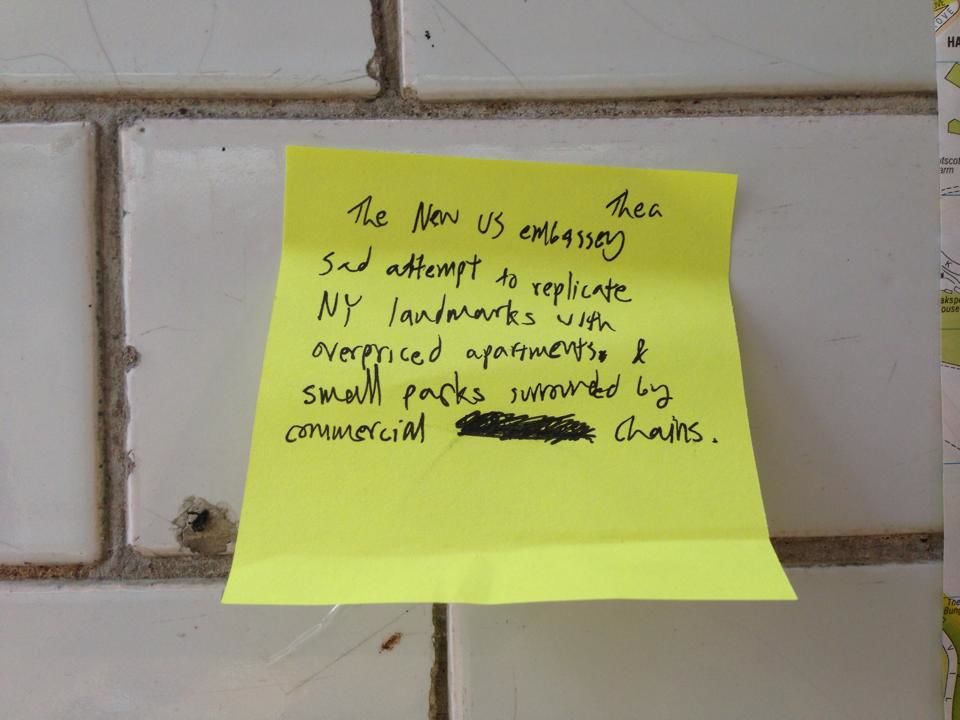 The New US embassey The a
sad attempt to replicate
NY landmarks with
overpriced apartments. &
small parks surrounded by
commercial chains.
HA